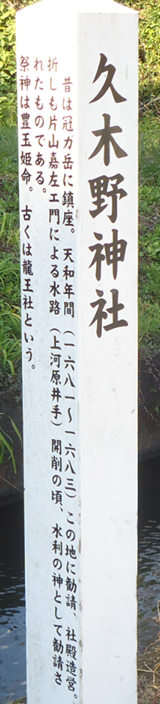 久木野神社
昔は冠ガ岳に鎮座。天和年間（一六八一～一六八三）この地に勧請、社殿造営。
折しも片山嘉左エ門による水路（上河原井手）開削の頃、水利の神として勧請さ
れたものである。
祭神は豊玉姫命。古くは龍王社という。